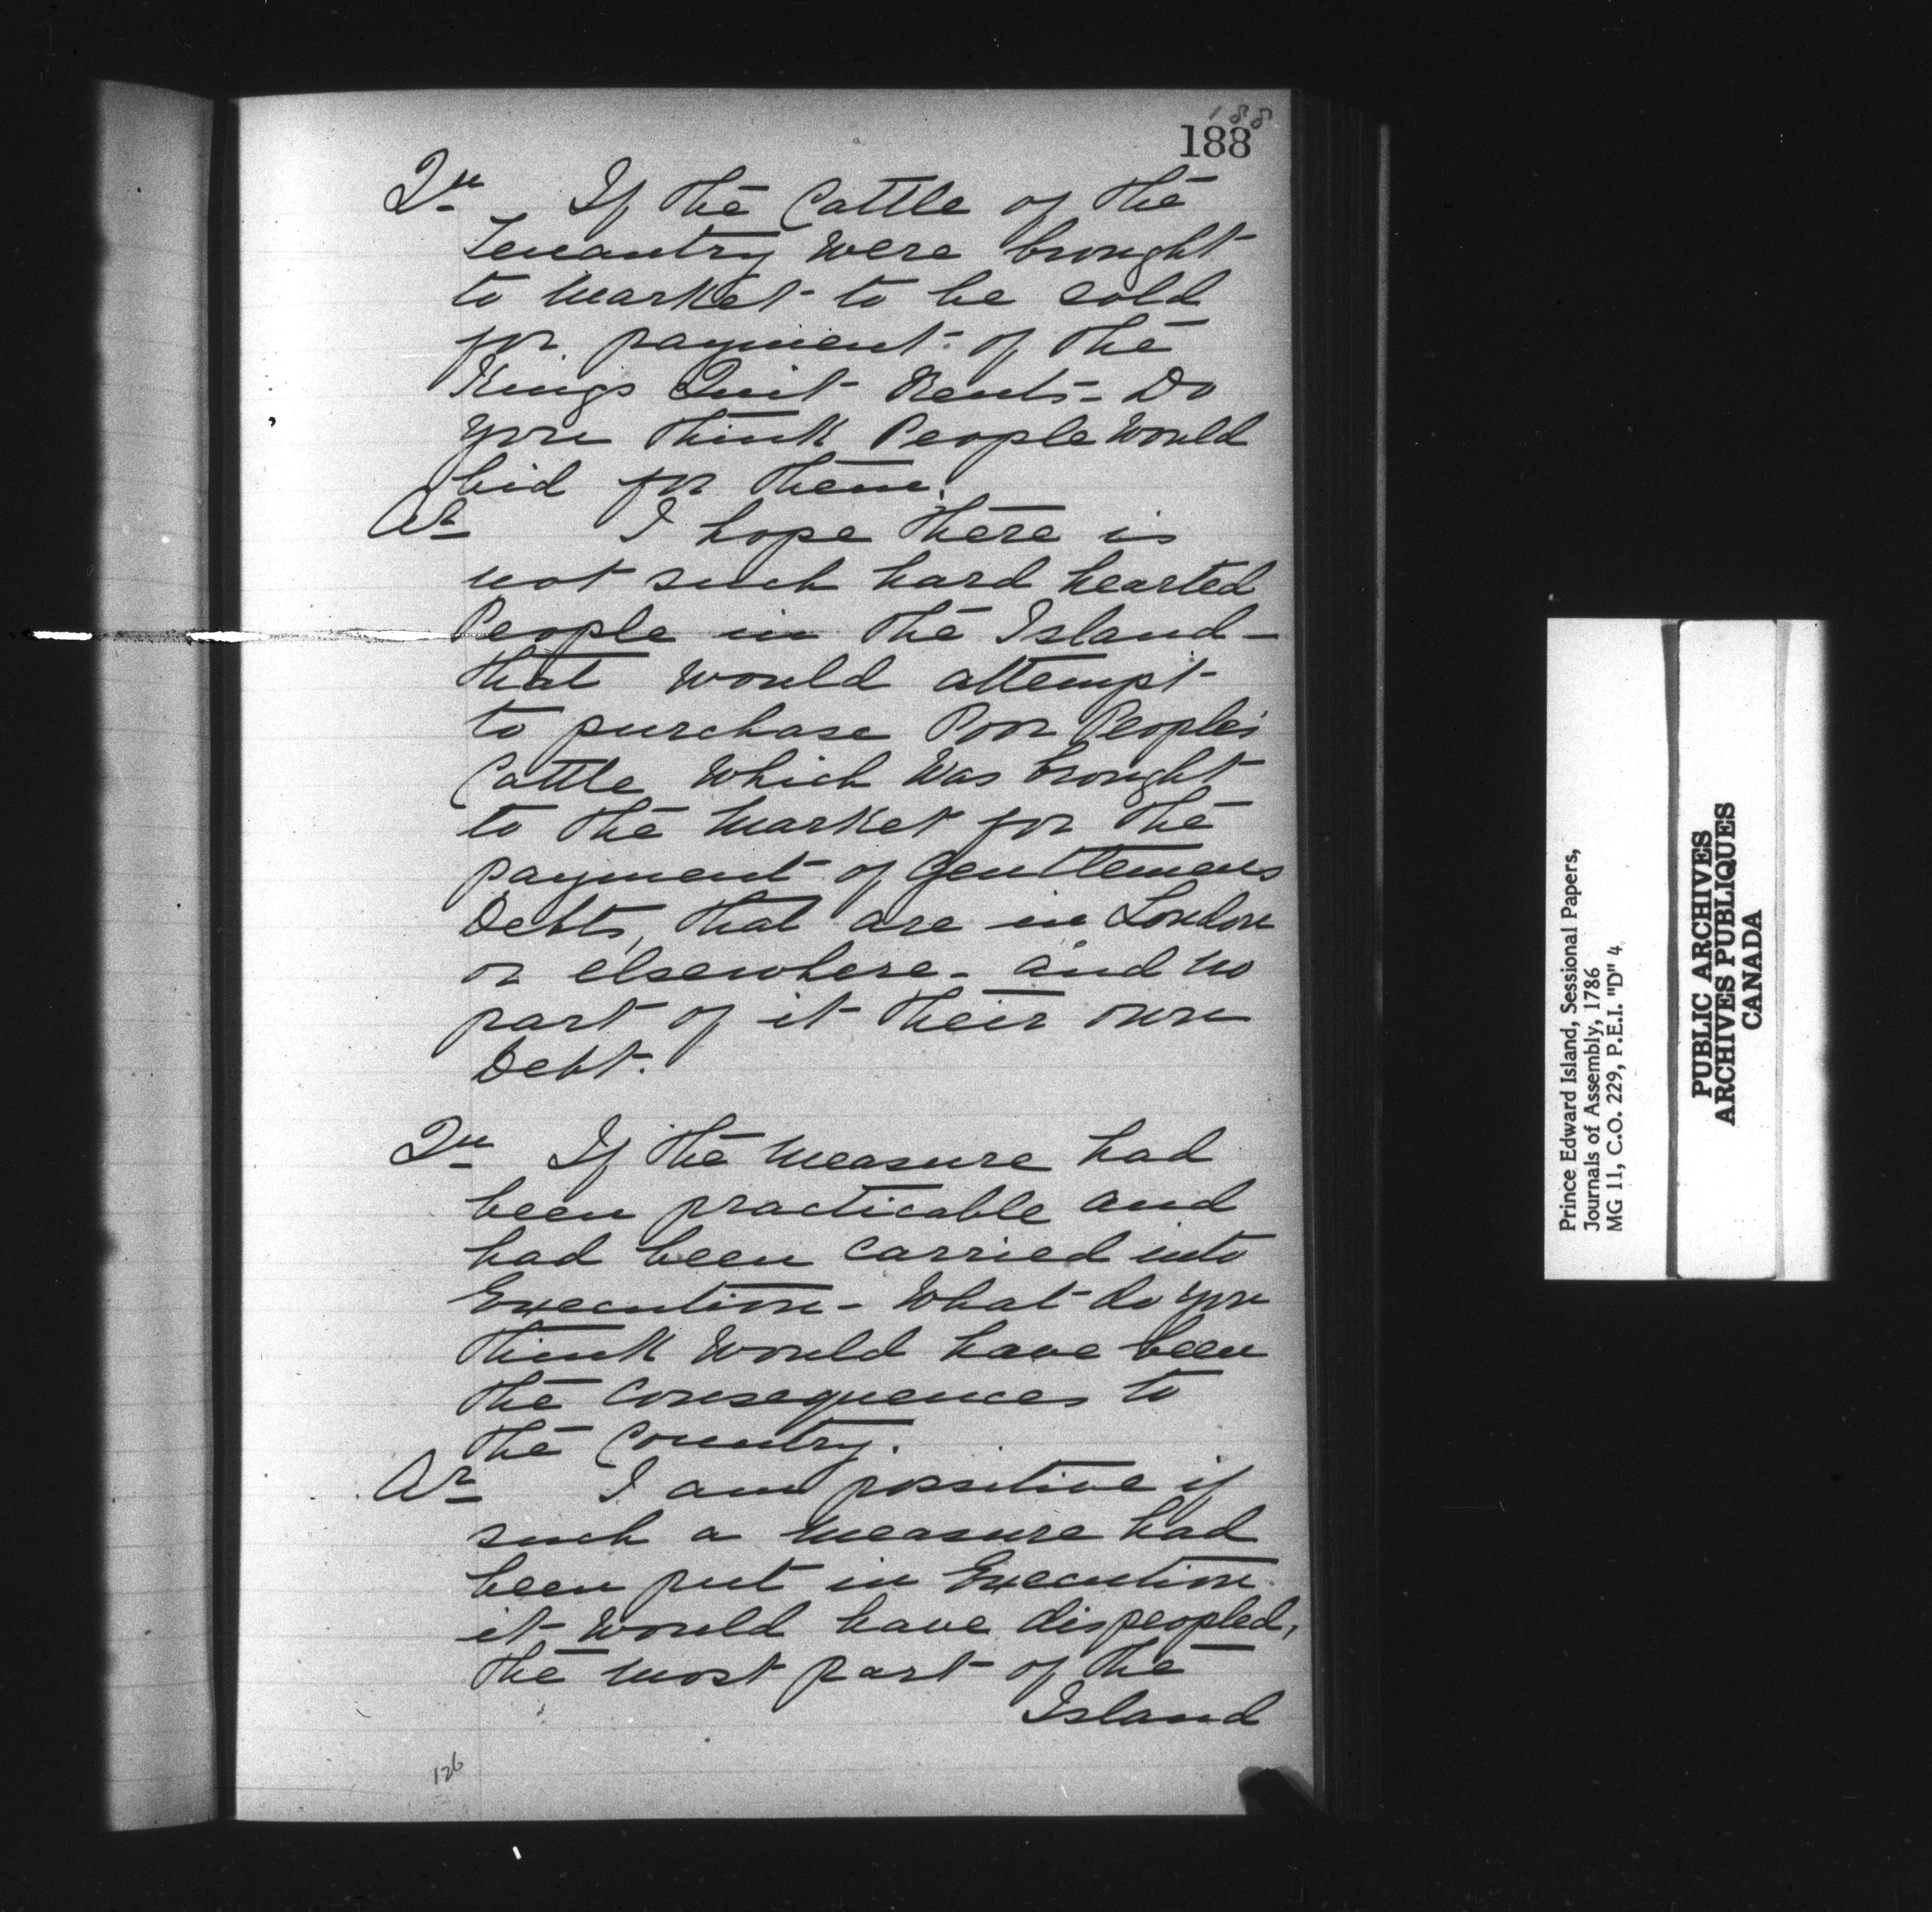 188
188
Qu If the Cattle of the
Tenantry were brought
to Market to be sold
for payment of the
Kings Quit Rents - Do
you think People would
bid for them.
Ar I hope there is
not such hard hearted
People in the Island -
that would attempt
to purchase Poor People's
Cattle which was brought
to the Market for the
payment of Gentlemens
Debts, that are in London
or elsewhere - and no
part of it their own
Debt.
Qu If the Measure had
been practicable and
had been carried into
Execution - What do you
think would have been
the consequences to
the Country.
Ar I am possitive if
such a Measure had
been put in Execution
it would have dispeopled,
the most part of the
Island
126
Prince Edward Island, Sessional Papers,
Journals of Assembly, 1786
MG 11, C.O. 229, P.E.I. "D" 4
PUBLIC ARCHIVES
ARCHIVES PUBLIQUES
CANADA